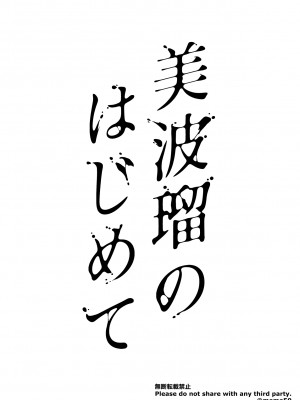 美波瑠の
はじめて
無断転載禁止
Please do not share with any third party.